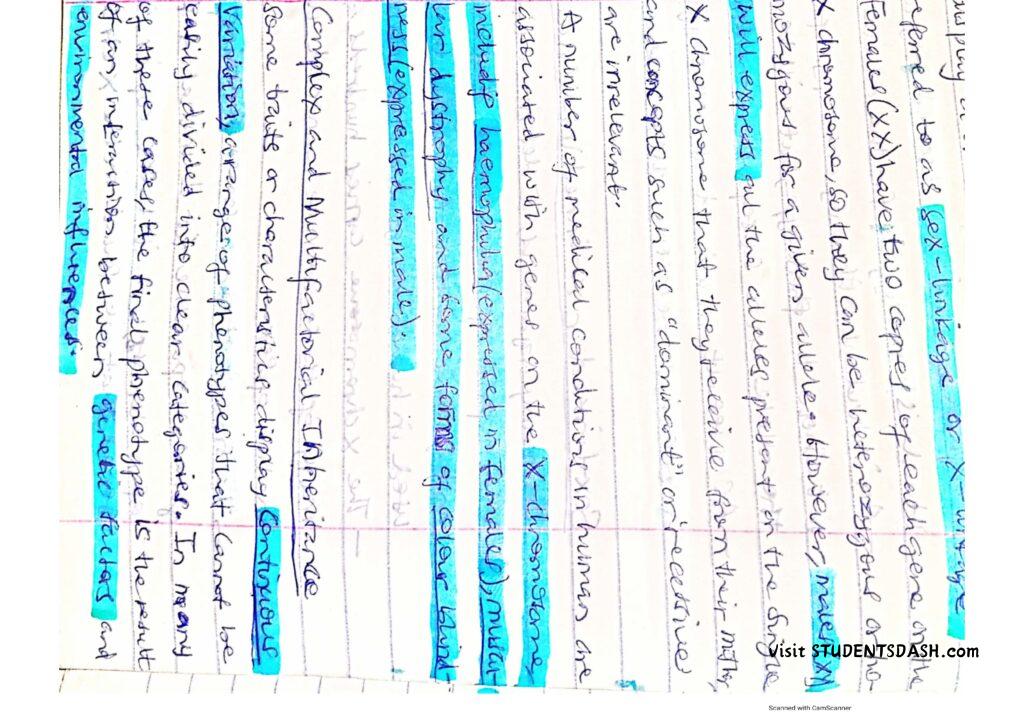 display
referred to as sex-linkage or X-linkage
Females(XX) have two copies of each gene on the
X chromosome, so they can be heterozygous or ho-
mozygous for a given allele. However, males(XY)
will express all the alleles present on the single
X chromosome that they receive from their mother,
and concepts such as "dominant" or "recessive"
are irrelevant.
A number of medical conditions in human are
associated with genes on the X-chromosome,
include haemophilia (expressed in females), muscu-
lar dystrophy and some forms of colour blind-
ness (expressed in male).
Complex and Multifactorial Inheritance
Some traits or characteristics display continuous
variation, a range of phenotypes that cannot be
easily divided into clear categories. In many
of these cases, the final phenotype is the result
of an interaction between genetic factors and
environmental influences.
Visit STUDENTSDASH.com
Scanned with CamScanner